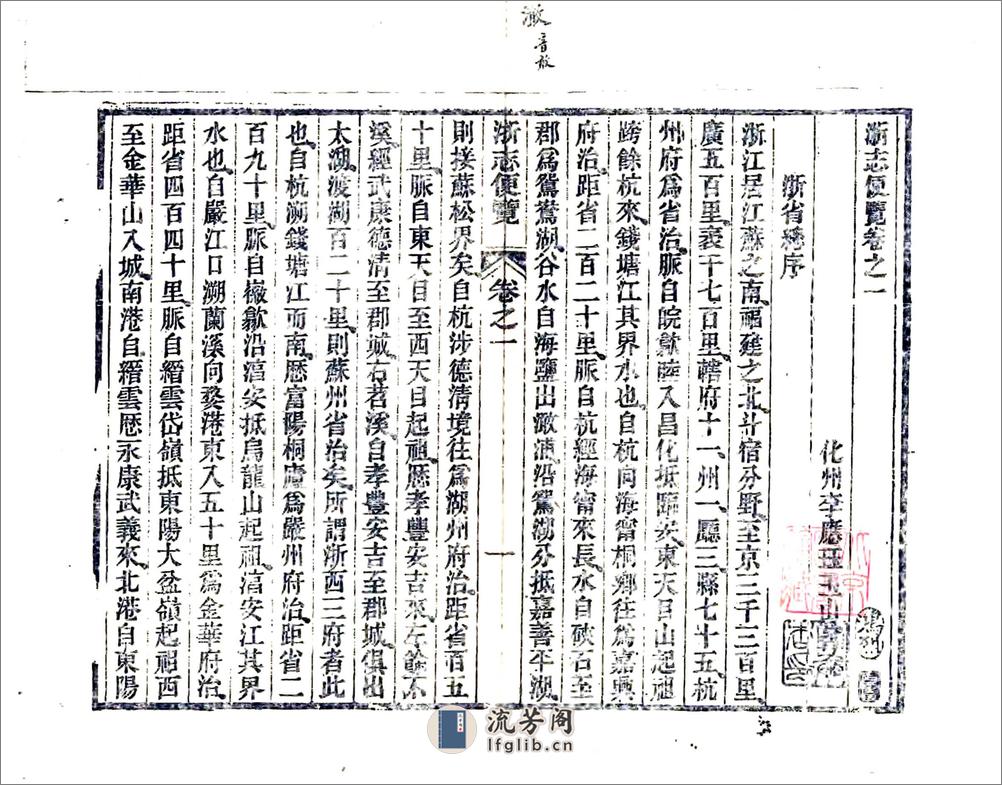 澉音敢
浙志便覽卷之一
化州李應珏
浙省總序
浙江居江蘇之南福建之北斗宿分野至京三千三百里
廣五百里袤千七百里轄府十一州一廳三縣七十五杭
州府爲省治脈自皖歙睦入昌化抵臨安東天目山起祖
跨餘杭來錢塘江其界水也自杭向海甯桐鄉往爲嘉興
府治距省二百二十里脈自杭經海甯來長水自硤石至
郡爲鴛鴦湖谷水自海鹽出澉浦沿鴛湖分抵嘉善平湖
則接蘇松界矣自杭涉德淸境往爲湖州府治距省百五
十里脈自東天目至西天目起祖歷孝豐安吉來左餘不
溪經武康德清至郡城右苕溪自孝豐安吉至郡城俱出
太湖渡湖百二十里則蘇州省治矣所謂浙西三府者此
也自杭溯錢塘江而南歷富陽桐廬爲嚴州府治距省二
百九十里脈自徽歙沿湻安抵烏龍山起祖湻安江其界
水也自嚴江口溯蘭溪向婺港東入五十里爲金華府治
距省四百四十里脈自縉雲岱嶺抵東陽大盆嶺起祖西
至金華山入城南港自縉雲歷永康武義來北港自東陽
浙志便覽
卷之一
一
流芳阁
lfglib.cn